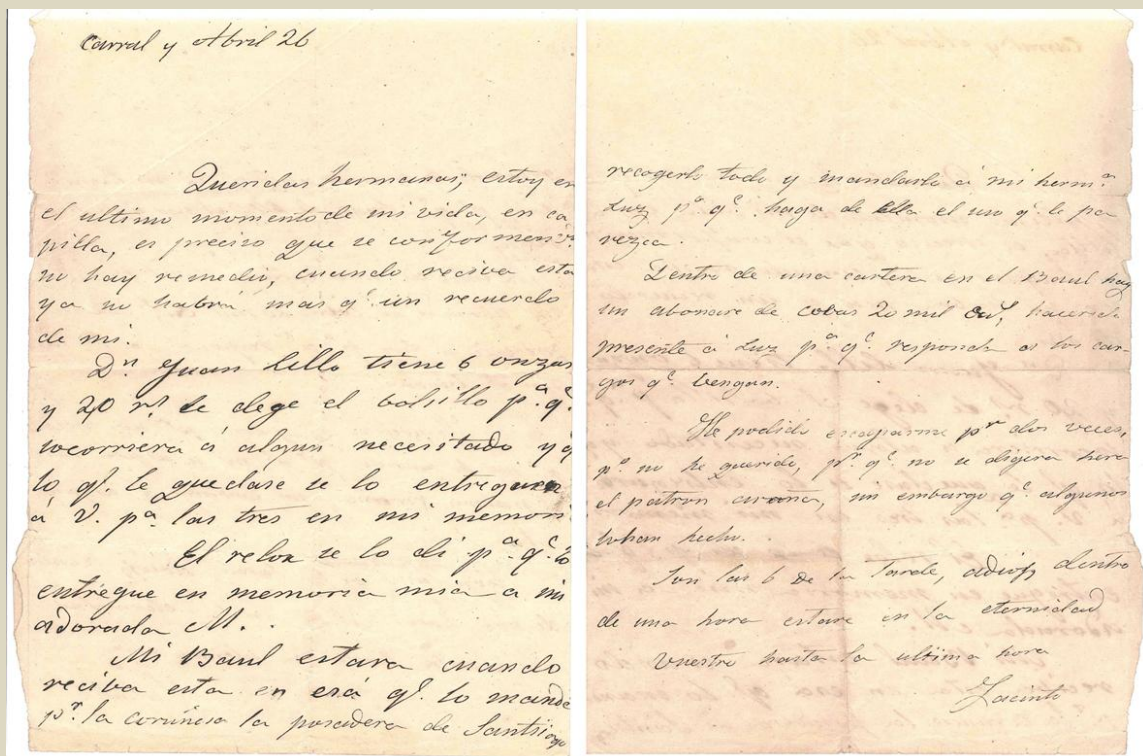 Carral y Abril 26
Queridas hermanas; estoy en
el ultimo momento de mi vida, en ca
pilla, es preciso que se conformen
no hay remedio, cuando reciva esta
ya no habrá mas qe. un recuerdo
de mi.
Dn. Juan Lillo tiene 6 onzas
y 20 rs. le dege el bolsillo pa. qe.
socorriera á algun necesitado y q
lo qe. le quedase se lo entreguen
á V. pa las tres en mi memori
El relox se lo di pa. qe. lo
entregue en memoria mia a mi
adorada M.
Mi Baul estara cuando
reciva esta en esa qe. lo mandé
pr. la coruñesa la posadera de Santiago
recogerlo todo y mandarlo á mi herma.
Luz pa. qe. haga de ella el uso qe. le pa
rezca.
Dentro de una cartera en el Baul hay
un abonare de 20 mil hacerselo
presente á Luz pa. qe. responda a los car-
gos qe. bengan.
He podido escaparme pr dos veces,
po no he querido, pr. qe. no se digera hera
el patron araña, sin embargo qe. algunos
lohan hecho.
Son las 6 de la Tarde, adios, dentro
de una hora estare en la eternidad
Vuestro hasta la ultima hora
Jacinto